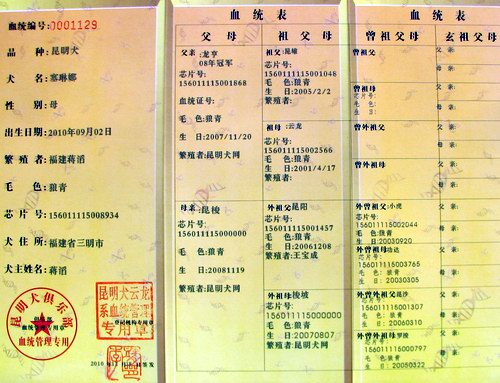 血统编号:0001129
品 种:昆明犬
犬 名:塞琳娜
性 别:母
出生日期:2010年09月02日
繁殖者:福建蒋滔
毛 色:狼青
芯片号:156011115008934
犬住所:福建省三明市
犬主姓名:蒋滔
昆明犬俱乐部
血统管理专用章
血统管理专用
昆明犬云龙
系血统管理
专用章
血统表
父母
祖父母
父亲:龙亨
08年冠军
芯片号:
156011115001868
血统证号:
毛 色:狼青
生 日:2007/11/20
繁殖者:昆明犬网
母亲:昆梭
芯片号:
15601111500000
毛 色:狼青
生 日:20081119
繁殖者:昆明犬网
祖父:昆雄
芯片号:
156011115001048
毛 色:狼青
生 日:2005/2/2
繁殖者:
祖母:云龙
芯片号:
156011115002566
毛 色:狼青
生 日:2001/4/17
繁殖者:
外祖父昆阳
芯片号:
156011115001457
毛 色:狼青
生 日:20061208
繁殖者:王宝成
外祖母梭坡
芯片号:
156011115000000
毛 色:狼青
生 日:20070807
繁殖者:昆明犬网
血统表
曾祖父母
玄祖父母
曾祖父
曾祖母
芯片号:
毛 色:
生 日:
曾外祖父
曾外祖母
外曾祖父:小虎
芯片号:
156011115002044
毛 色:狼青
生 日:20030920
外曾祖母
芯片号:
156011115003765
毛 色:狼青
生 日:20030305
曾外祖父
芯片号:
156011115001307
毛 色:狼青
生 日:20060310
曾外祖母
芯片号:
156011115000797
毛 色:狼青
生 日:20050322
父亲:
母亲:
父亲:
母亲:
父亲:
母亲:
父亲:
母亲:
父亲:
母亲:
父亲:
母亲:
父亲:
母亲:
父亲:
母亲: